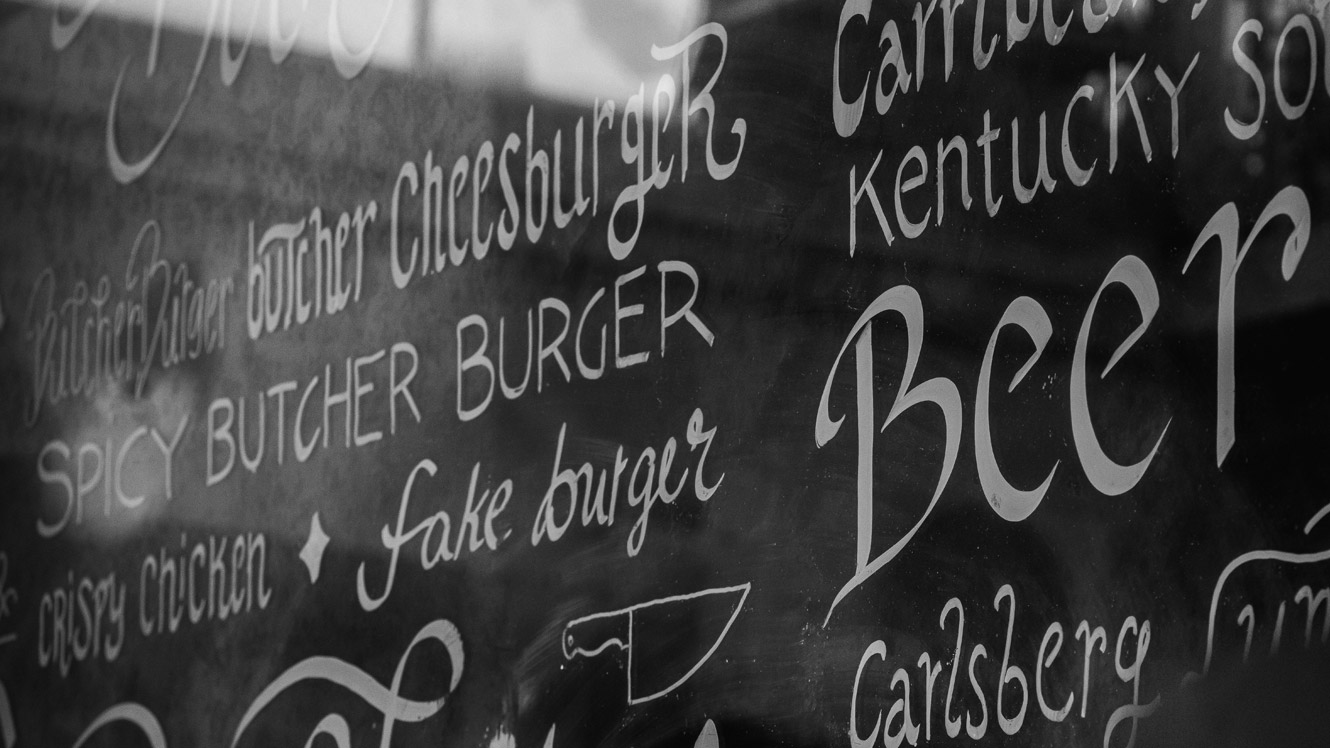 ButcherBurger butcher CheesburgeR
SPICY BUTCHER BURGER
crispy chicken fake burger
Kentucky
Beer
Carlsberg